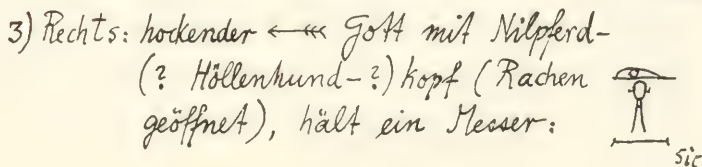 3) Rechts: hockender ←⋘ Gott mit Nilpferd-
(? Höllenhund-?) kopf (Rachen
geöffnet), hält ein Messer:
sic